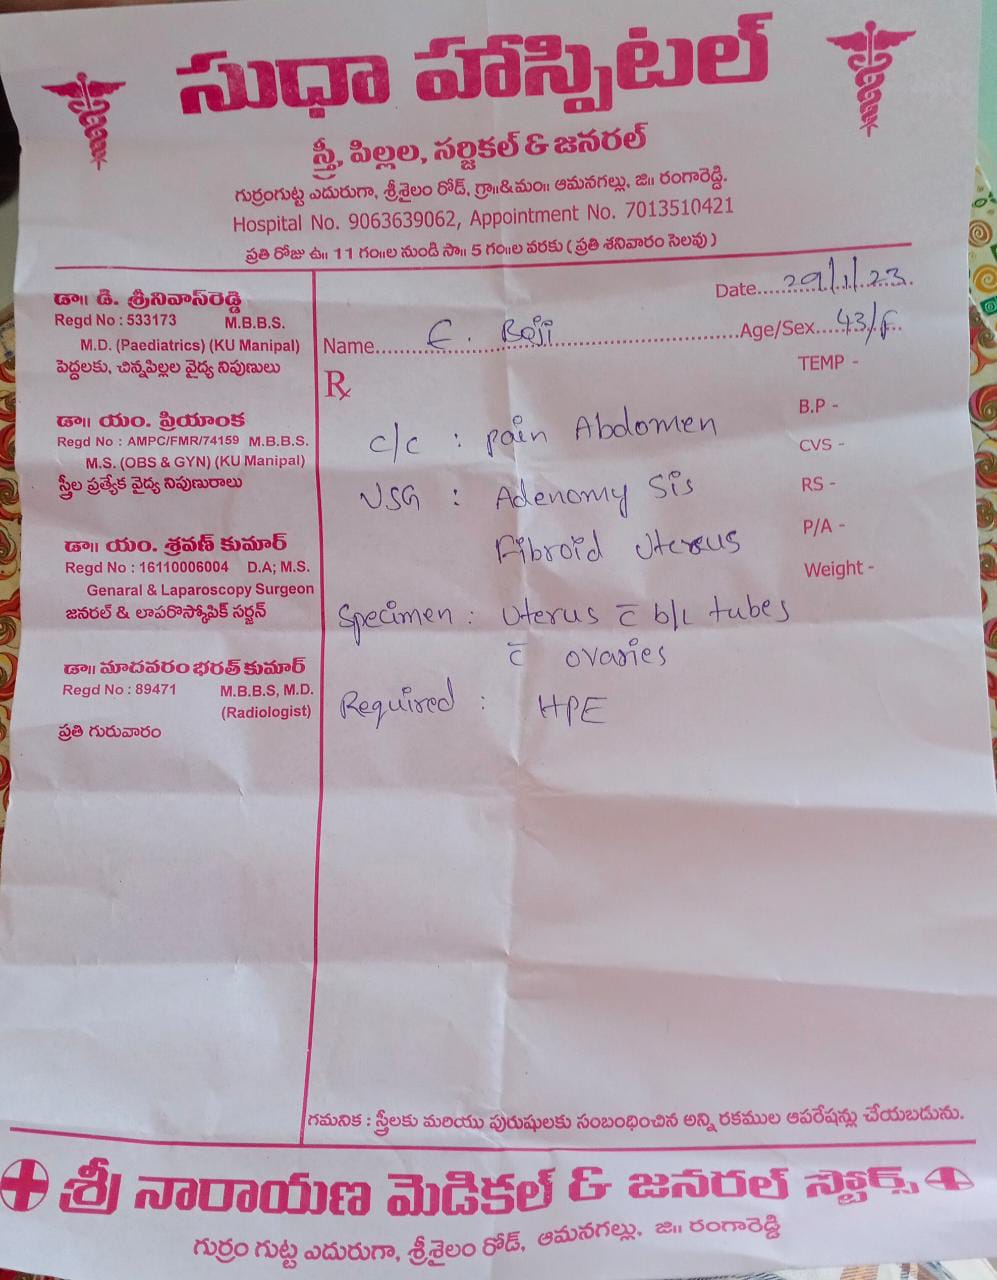 సుధా హాస్పిటల్
స్త్రీ, పిల్లల, సర్జికల్ & జనరల్
గుర్రంగుట్ట ఎదురుగా, శ్రీశైలం రోడ్, గ్రా॥&మం॥ ఆమనగల్లు, జి॥ రంగారెడ్డి.
Hospital No. 9063639062, Appointment No. 7013510421
ప్రతి రోజు ఉ॥ 11 గం॥ల నుండి సా॥ 5 గం॥ల వరకు ( ప్రతి శనివారం సెలవు )
డా॥ డి. శ్రీనివాస్‌రెడ్డి
Regd No : 533173 M.B.B.S.
M.D. (Paediatrics) (KU Manipal)
పెద్దలకు, చిన్నపిల్లల వైద్య నిపుణులు
డా॥ యం. ప్రియాంక
Regd No : AMPC/FMR/74159 M.B.B.S.
M.S. (OBS & GYN) (KU Manipal)
స్త్రీల ప్రత్యేక వైద్య నిపుణురాలు
డా॥ యం. శ్రవణ్ కుమార్
Regd No : 16110006004 D.A; M.S.
Genaral & Laparoscopy Surgeon
జనరల్ & లాపరొస్కోపిక్ సర్జన్
డా॥ మాదవరం భరత్ కుమార్
Regd No : 89471 M.B.B.S, M.D.
(Radiologist)
ప్రతి గురువారం
Date 29/1/23
Name E. Boji Age/Sex 43/F
Rx
TEMP -
B.P -
CVS -
RS -
P/A -
Weight -
c/c : pain Abdomen
USG : Adenomy Sis
Fibroid Uterus
Specimen : Uterus c̄ b/L tubes
c̄ ovaries
Required : HPE
గమనిక : స్త్రీలకు మరియు పురుషులకు సంబంధించిన అన్ని రకముల ఆపరేషన్లు చేయబడును.
శ్రీ నారాయణ మెడికల్ & జనరల్ స్టోర్స్
గుర్రం గుట్ట ఎదురుగా, శ్రీశైలం రోడ్, ఆమనగల్లు, జి॥ రంగారెడ్డి